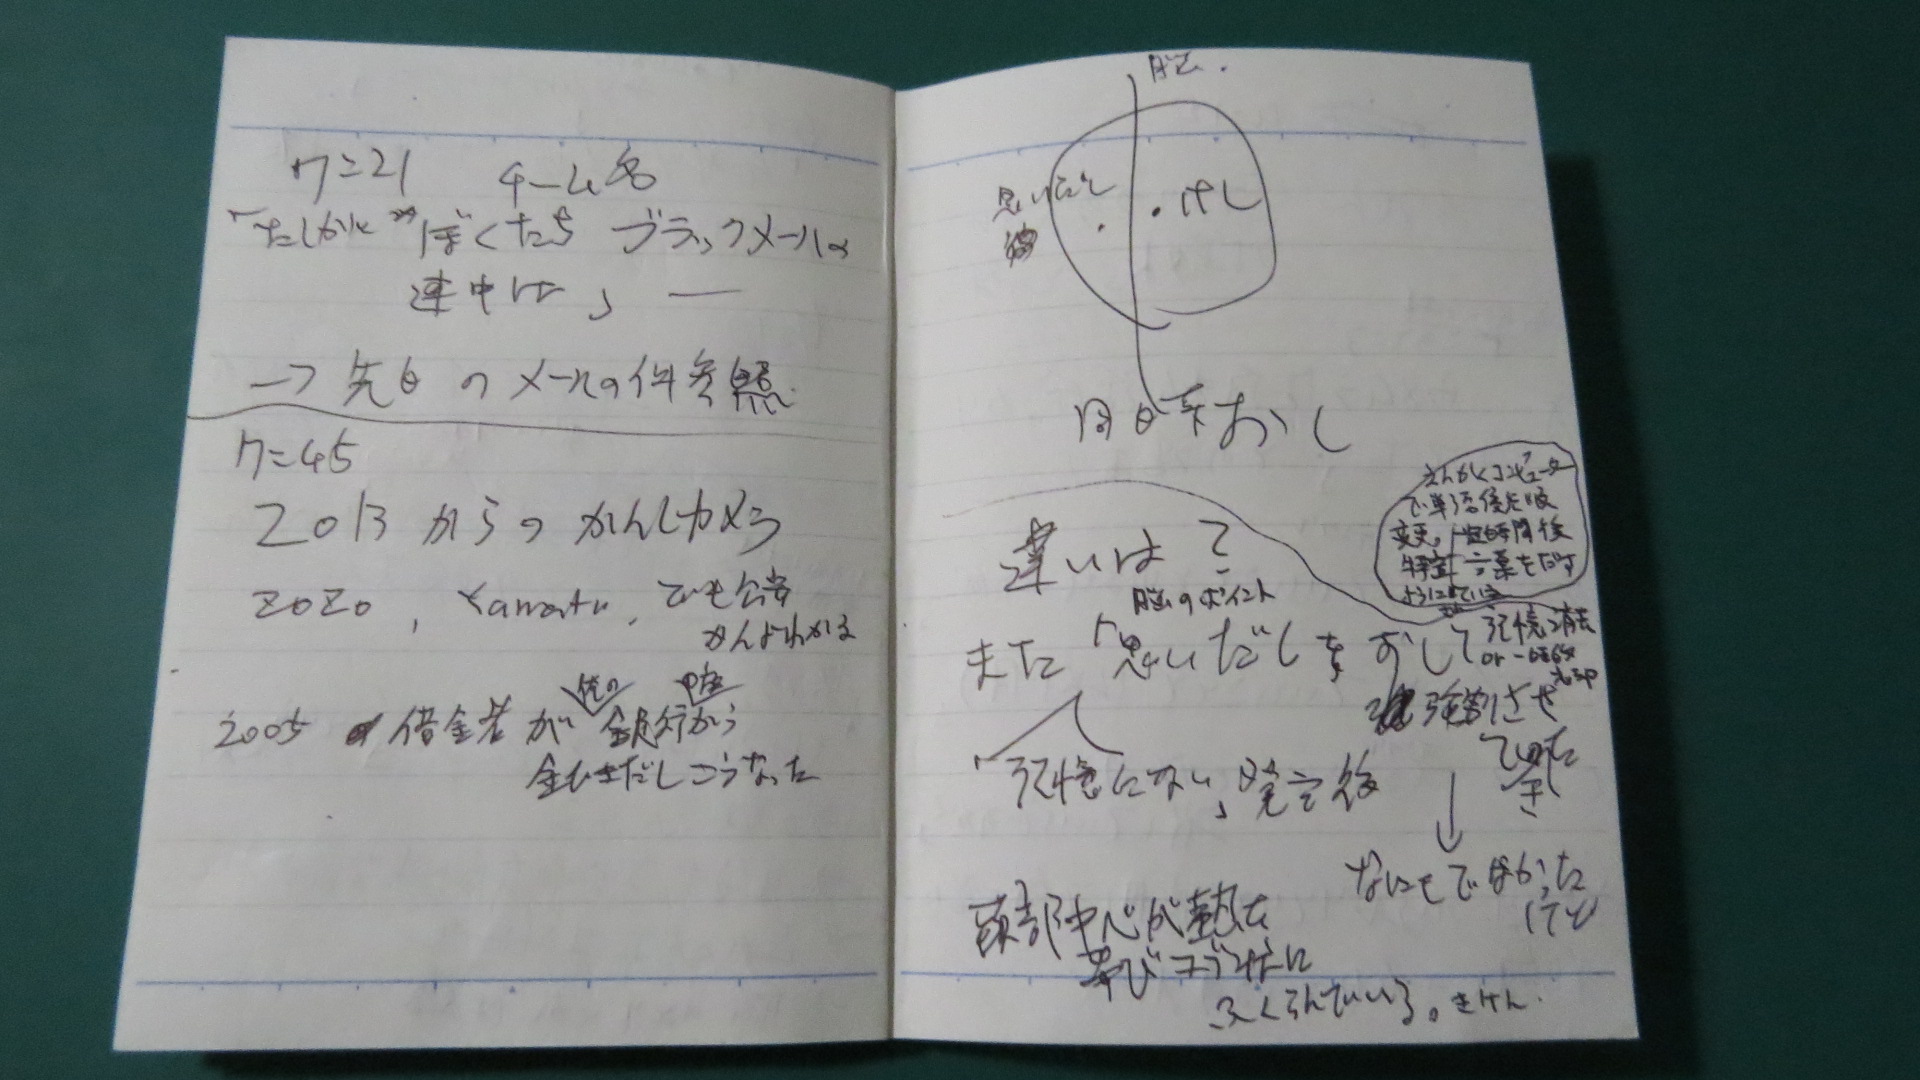 7=21 チーム名
「たしかに"ぼくたち ブラックメールの
連中は」 ―
→ 先日のメールの件参照
7=45
2013からのかんしカメラ
ZOZO, Yamato, でも公安
かんよわかる
他の 口座
2005 借金者が銀行から
金ひきだしこうなった
脳.
思いだし
・けし
同時おし
違いは?
えんかくコンピューター
で単語優先順
変更。一定時間後
特定言葉をだす
ようにしている
脳のポイント
また「思いだしをおして
記憶消去
or 一時
強制させ
てみた
「記憶にない」発言後
なにもでなかった
けど
頭部中心が熱を
帯びコブ状に
ふくらんでいる。きけん.